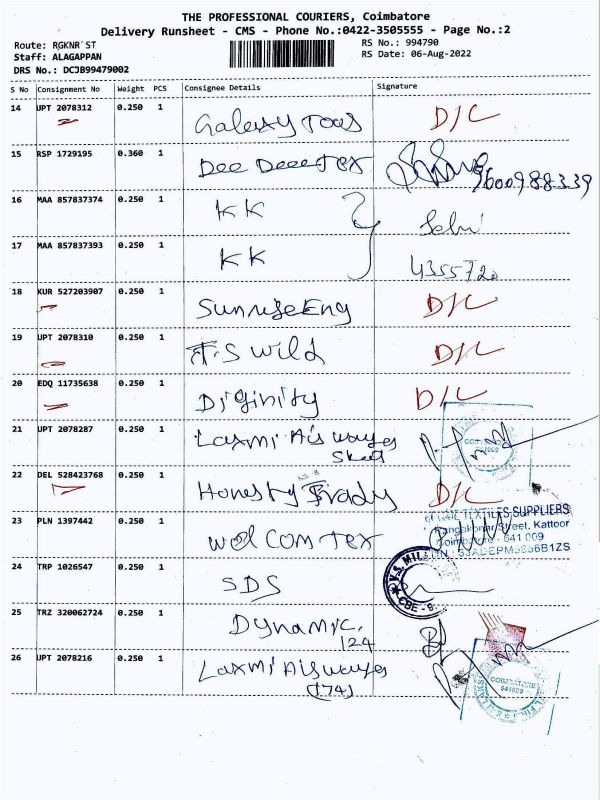 THE PROFESSIONAL COURIERS, Coimbatore
Delivery Runsheet - CMS - Phone No.:0422-3505555 - Page No.:2
Route: RGKNR'ST
Staff: ALAGAPPAN
DRS No.: DCJB99479002
RS No.: 994790
RS Date: 06-Aug-2022
S No Consignment No Weight PCS Consignee Details Signature
14 UPT 2078312 0.250 1 Galaxy Tools D/C
15 RSP 1729195 0.360 1 Dee Deee Tex 9600988339
16 MAA 857837374 0.250 1 KK Selvi
17 MAA 857837393 0.250 1 KK 4355720
18 KUR 527203907 0.250 1 Sunrise Eng D/C
19 UPT 2078310 0.250 1 T.S Wild D/C
20 EDQ 11735638 0.250 1 Diginity D/C
21 UPT 2078287 0.250 1 Laxmi Ais wayes
COIMBATORE
641009
22 DEL 528423768 0.250 1 Honesty Trady D/C
23 PLN 1397442 0.250 1 Wel Com Tex
TEXTILES SUPPLIERS
Street, Kattoor
641 009
24 TRP 1026547 0.250 1 SDS
V.S. MIL
CBE - 9
25 TRZ 320062724 0.250 1 Dynamic.
124
26 UPT 2078216 0.250 1 Laxmi Aiswayes
(174)
COIMBATORE
641009